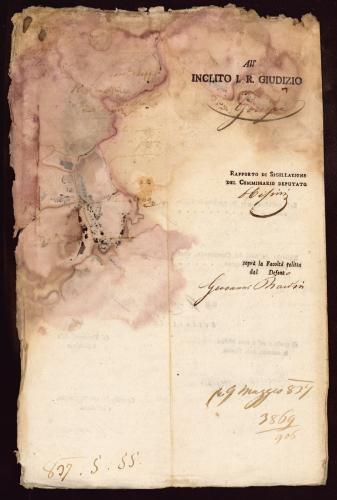 All'
INCLITO I. R. GIUDIZIO
RAPPORTO DI SIGILLAZIONE
DEL COMMISSARIO DEPUTATO
sopra la Facoltà relitta
dal Defunto
Giovanni
p. 9 Maggio 837
3869
906
837. 5. 55.